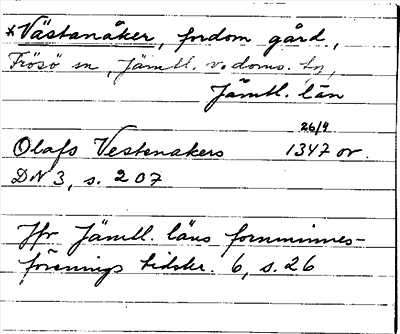 *Västanåker, fordom gård,
Frösö sn, Jämtl. v. doms. tg,
Jämtl. län
26/4
Olafs Vestanakers 1347 or.
DN 3, s. 207
Jfr Jämtl. läns fornminnes-
förenings tidskr. 6, s. 26